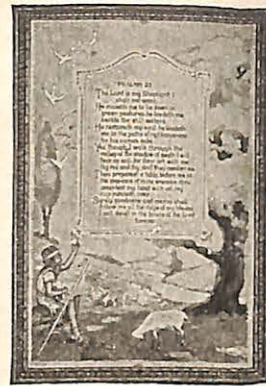 PSALM 23
The Lord is my Shepherd I
shall not want.
He maketh me to lie down in
green pastures he leadeth me
beside the still waters.
He restoreth my soul he leadeth
me in the paths of righteousness
for his names sake.
Yea though I walk through the
valley of the shadow of death I will
fear no evil for thou art with me
thy rod and thy staff they comfort me.
Thou preparest a table before me in
the presence of mine enemies thou
anointest my head with oil my
cup runneth over.
Surely goodness and mercy shall
follow me all the days of my life and
I will dwell in the house of the Lord
forever